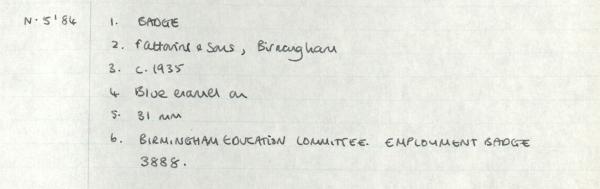 N.5'84 1. BADGE
2. Fattorini & Sons, Birmingham
3. c.1935
4 Blue enamel on
5. 31 mm
6. BIRMINGHAM EDUCATION COMMITTEE. EMPLOYMENT BADGE
3888.